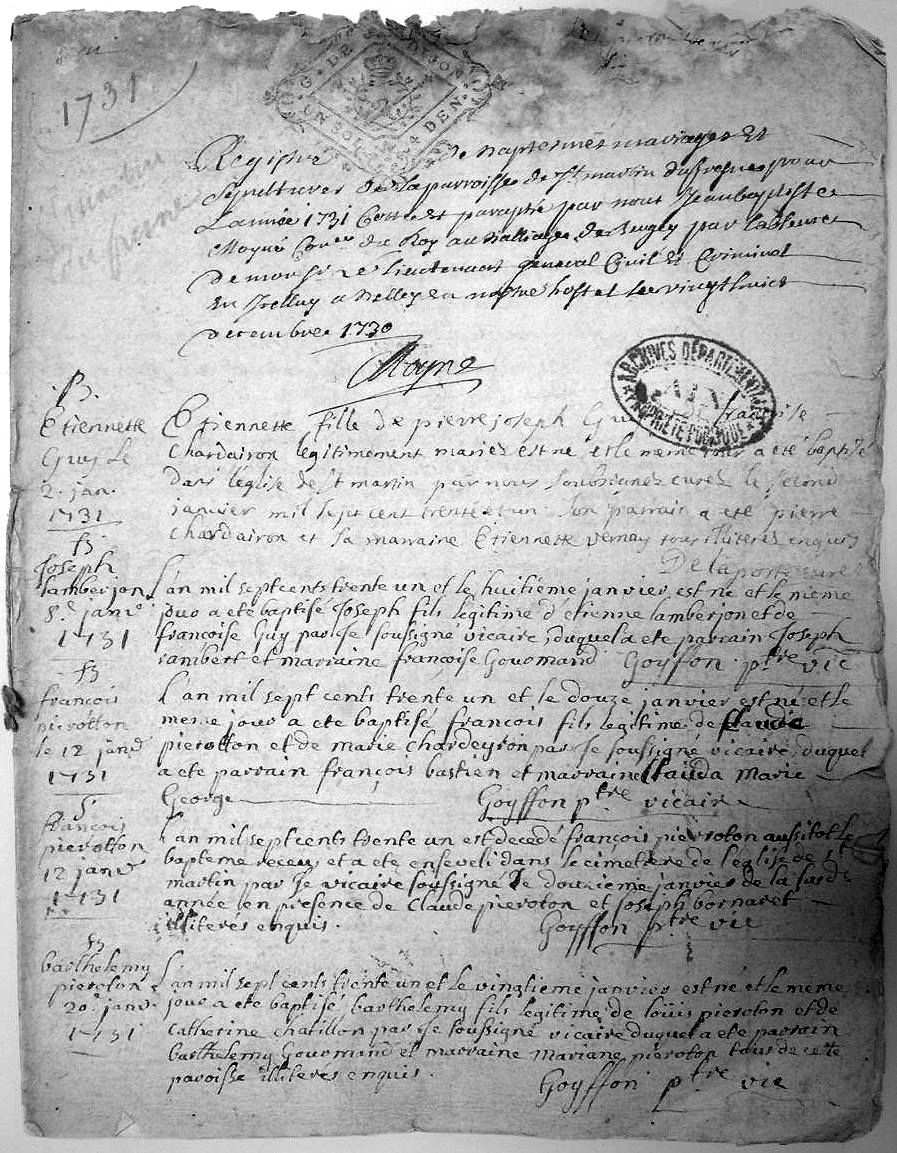 1731
G. DE DIJON
UN SOL 4 DEN.
Registre de baptesmes mariages Et
Sepultures de la parroisse de St martin dufresne pour
L'année 1731 Cotté et paraphé par nous Jean baptiste
Moyne Coner du Roy au Balliage de Bugey par labsence
De monsr Le Lieutenant general Civil Et Criminel
a Belley en nostre hostel Le vingt huict
decembre 1730
Moyne
ARCHIVES DÉPARTEMENTALES
AIN
PROPRIÉTÉ PUBLIQUE
B
Etiennette
Guy Le
2. jan.
1731
Etiennette fille de pierre joseph Guy et de francoise
Chardairon legitimement mariez est né et le meme jour a été baptisé
dans l'eglise de St martin par nous soubsignez curez le second
janvier mil sept cent trente et un son parrain a été pierre
Chardairon et sa marraine Etiennette vernay tous illiterés enquis
Delaporte curé
B
Joseph
Lamberjon
8e janv.
1731
L'an mil sept cents trente un et le huitième janvier, est né et le meme
jour a eté baptisé Joseph fils legitime d'etienne lamberjon et de
francoise Guy par Je soussigné vicaire, duquel a eté parrain Joseph
rambert et marraine francoise Gouomand Goyffon ptre vic
B
françois
pierotton
le 12 janv
1731
L'an mil sept cents trente un et le douze janvier est né et le
meme jour a eté baptisé françois fils legitime de claude
pierotton et de marie Chardeyron par Je soussigné vicaire, duquel
a eté parrain françois bastien et marraine Clauda Marie
George Goyffon ptre vicaire
S.
françois
pierotton
12 janv
1731
L'an mil sept cents trente un est decedé françois pieroton aussitot le
bapteme receu, et a eté enseveli dans le cimetiere de l'eglise de St
martin par Je vicaire soussigné le douzieme janvier de la susde
année en presence de Claude pieroton et Joseph bornaret
illiterés enquis. Goyffon ptre vic
B
barthelemy
pieroton
20e janv.
1731
L'an mil sept cents trente un et le vingtieme janvier est né et le meme
jour a eté baptisé barthelemy fils legitime de loüis pieroton et de
Catherine chatillon par Je soussigné vicaire duquel a eté parrain
barthelemy Gouomand et marraine Mariane pieroton tous de cette
paroisse illiterés enquis. Goyffon ptre vic